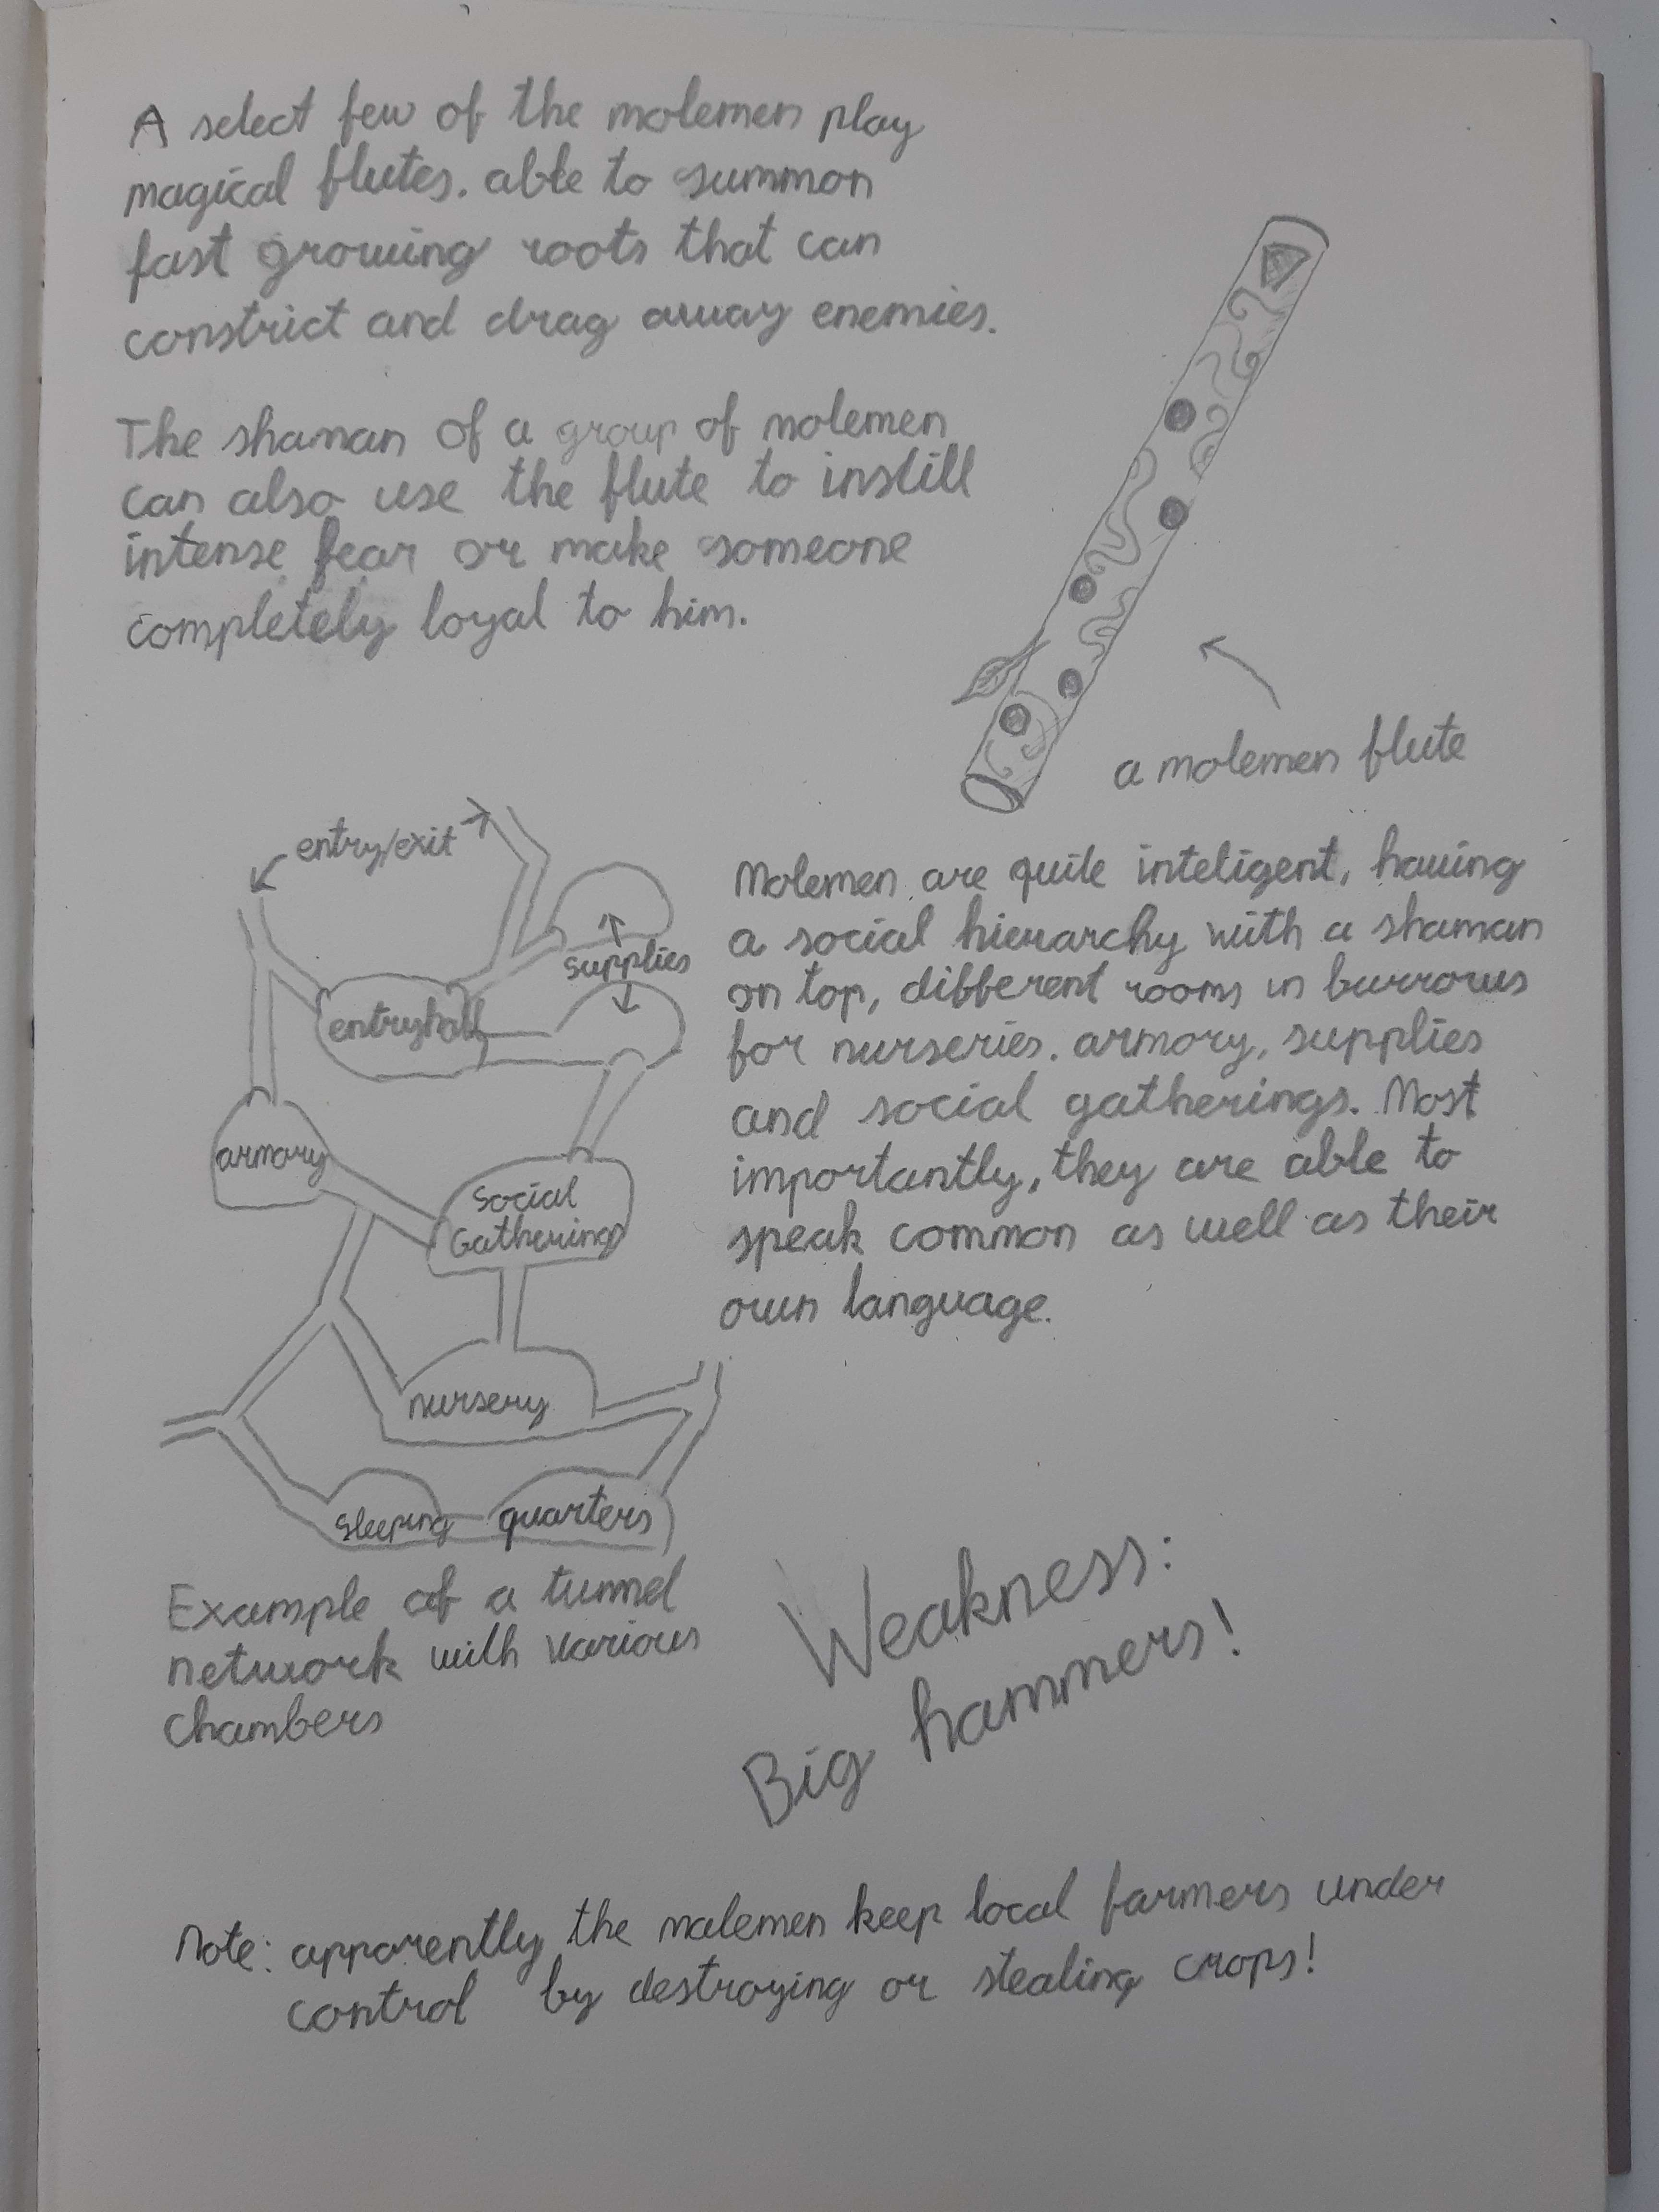 A select few of the molemen play
magical flutes. able to summon
fast growing roots that can
constrict and drag away enemies.
The shaman of a group of molemen
can also use the flute to instill
intense fear or make someone
completely loyal to him.
a molemen flute
entry/exit
supplies
entryhall
armory
Social
Gatherings
nursery
Sleeping quarters
Example of a tunnel
network with various
chambers
Molemen are quite inteligent, having
a social hierarchy with a shaman
on top, different rooms in burrows
for nurseries. armory, supplies
and social gatherings. Most
importantly, they are able to
speak common as well as their
own language.
Weakness:
Big hammers!
Note: apparently the molemen keep local farmers under
control by destroying or stealing crops!